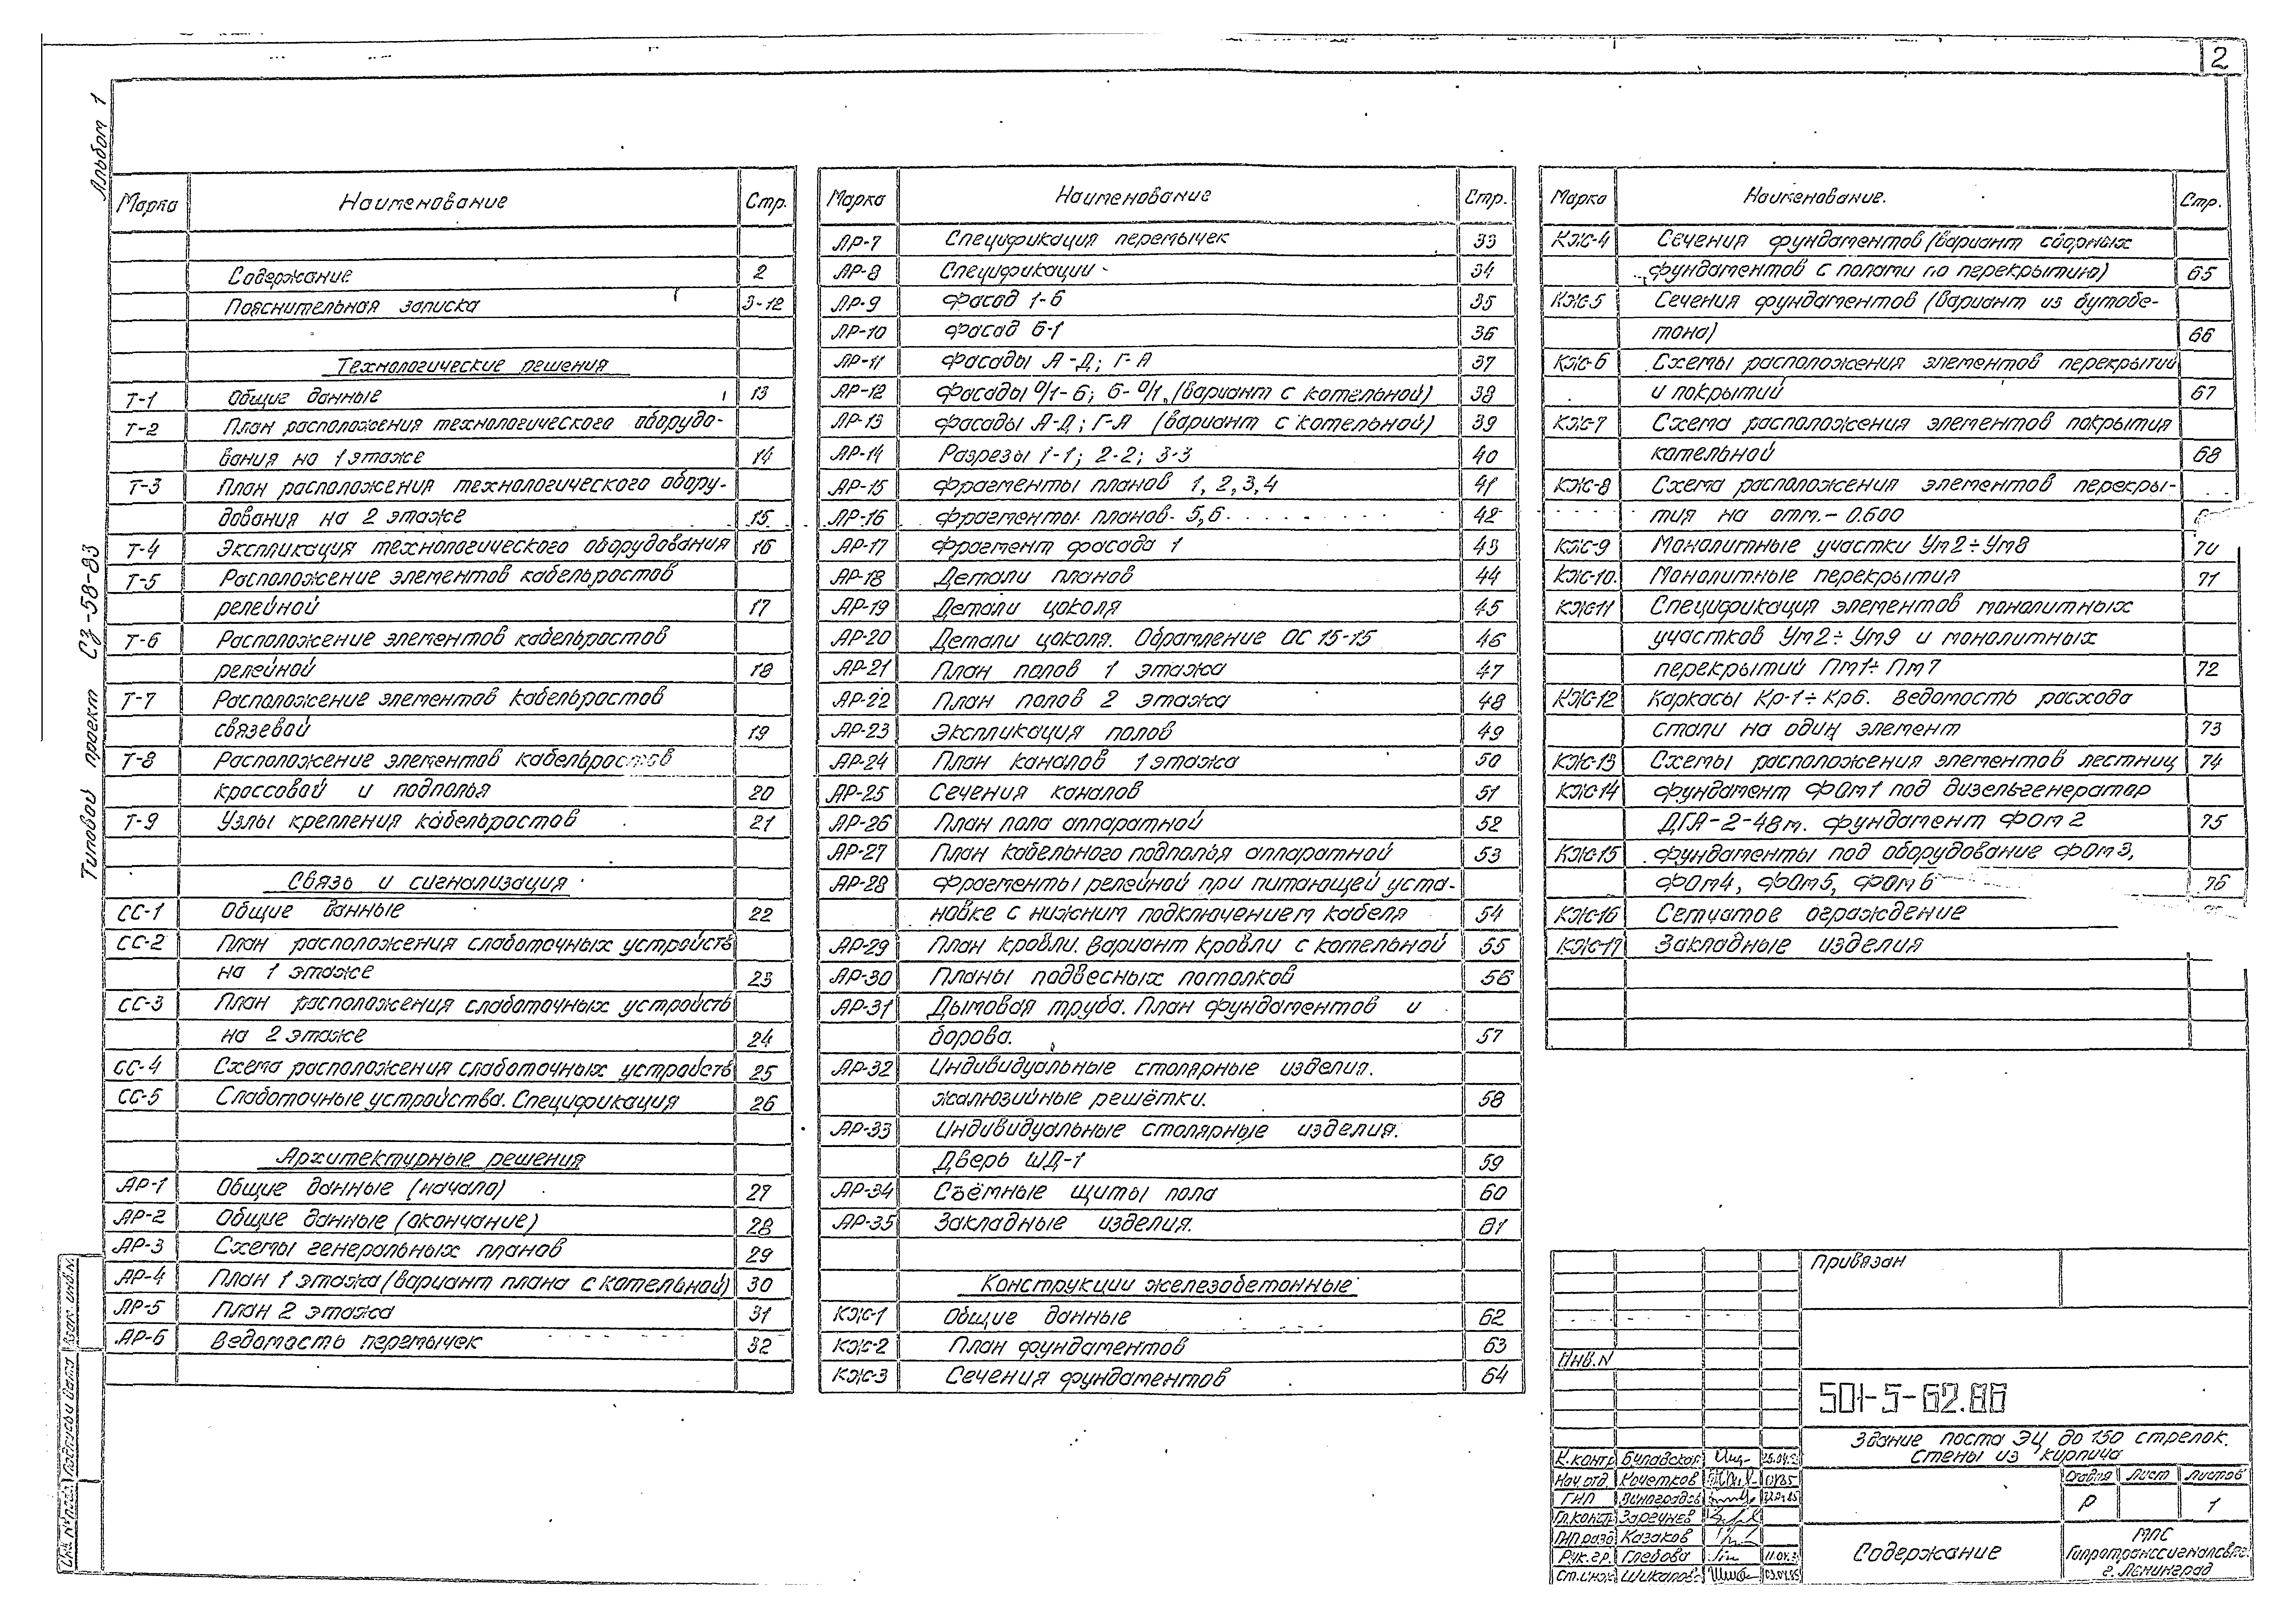 2
Альбом 1
Типовой проект СЗ-58-83
Марка Наименование Стр.
Содержание 2
Пояснительная записка 3-12
Технологические решения
Т-1 Общие данные 13
Т-2 План расположения технологического оборудо-
вания на 1 этаже 14
Т-3 План расположения технологического обору-
дования на 2 этаже 15
Т-4 Экспликация технологического оборудования 16
Т-5 Расположение элементов кабельростов
релейной 17
Т-6 Расположение элементов кабельростов
релейной 18
Т-7 Расположение элементов кабельростов
связевой 19
Т-8 Расположение элементов кабельростов
кроссовой и подполья 20
Т-9 Узлы крепления кабельростов 21
Связь и сигнализация
СС-1 Общие данные 22
СС-2 План расположения слаботочных устройств
на 1 этаже 23
СС-3 План расположения слаботочных устройств
на 2 этаже 24
СС-4 Схема расположения слаботочных устройств 25
СС-5 Слаботочные устройства. Спецификация 26
Архитектурные решения
АР-1 Общие данные (начало) 27
АР-2 Общие данные (окончание) 28
АР-3 Схемы генеральных планов 29
АР-4 План 1 этажа (вариант плана с котельной) 30
АР-5 План 2 этажа 31
АР-6 Ведомость перемычек 32
Марка Наименование Стр.
АР-7 Спецификация перемычек 33
АР-8 Спецификации 34
АР-9 Фасад 1-6 35
АР-10 Фасад 6-1 36
АР-11 Фасады А-Д; Г-А 37
АР-12 Фасады 0/1-6; 6-0/1 (вариант с котельной) 38
АР-13 Фасады А-Д; Г-А (вариант с котельной) 39
АР-14 Разрезы 1-1; 2-2; 3-3 40
АР-15 Фрагменты планов 1, 2, 3, 4 41
АР-16 Фрагменты планов 5, 6 42
АР-17 Фрагмент фасада 1 43
АР-18 Детали планов 44
АР-19 Детали цоколя 45
АР-20 Детали цоколя. Обрамление ОС 15-15 46
АР-21 План полов 1 этажа 47
АР-22 План полов 2 этажа 48
АР-23 Экспликация полов 49
АР-24 План каналов 1 этажа 50
АР-25 Сечения каналов 51
АР-26 План пола аппаратной 52
АР-27 План кабельного подполья аппаратной 53
АР-28 Фрагменты релейной при питающей уста-
новке с нижним подключением кабеля 54
АР-29 План кровли. Вариант кровли с котельной 55
АР-30 Планы подвесных потолков 56
АР-31 Дымовая труба. План фундаментов и
борова. 57
АР-32 Индивидуальные столярные изделия.
жалюзийные решётки. 58
АР-33 Индивидуальные столярные изделия.
Дверь ШД-1 59
АР-34 Съёмные щиты пола 60
АР-35 Закладные изделия. 61
Конструкции железобетонные
КЖ-1 Общие данные 62
КЖ-2 План фундаментов 63
КЖ-3 Сечения фундаментов 64
Марка Наименование. Стр.
КЖ-4 Сечения фундаментов (вариант сборных
фундаментов с полами по перекрытию) 65
КЖ-5 Сечения фундаментов (вариант из бутобе-
тона) 66
КЖ-6 Схемы расположения элементов перекрытий
и покрытий 67
КЖ-7 Схема расположения элементов покрытия
котельной 68
КЖ-8 Схема расположения элементов перекры-
тия на отм. - 0.600
КЖ-9 Монолитные участки Ум2÷Ум8 70
КЖ-10. Монолитные перекрытия 71
КЖ-11 Спецификация элементов монолитных
участков Ум2÷Ум9 и монолитных
перекрытий Пм1÷Пм7 72
КЖ-12 Каркасы Кр-1÷Кр6. Ведомость расхода
стали на один элемент 73
КЖ-13 Схемы расположения элементов лестниц 74
КЖ-14 Фундамент ФОм1 под дизель-генератор
ДГА-2-48м. Фундамент ФОм2 75
КЖ-15 Фундаменты под оборудование ФОм3,
ФОм4, ФОм5, ФОм6 76
КЖ-16 Сетчатое ограждение
КЖ-17 Закладные изделия
Привязан
Инв.N
501-5-62.86
Здание поста ЭЦ до 150 стрелок.
Стены из кирпича
Стадия Лист Листов
Р 1
Содержание
МПС
Гипротранссигналсвязь
г. Ленинград
К.контр Билавская
Нач.отд. Кочетков
ГИП Виноградов
Гл.конст.
Казаков
Рук.гр. Глебова
Ст.инж
Взам. инв.N
Подпись и дата